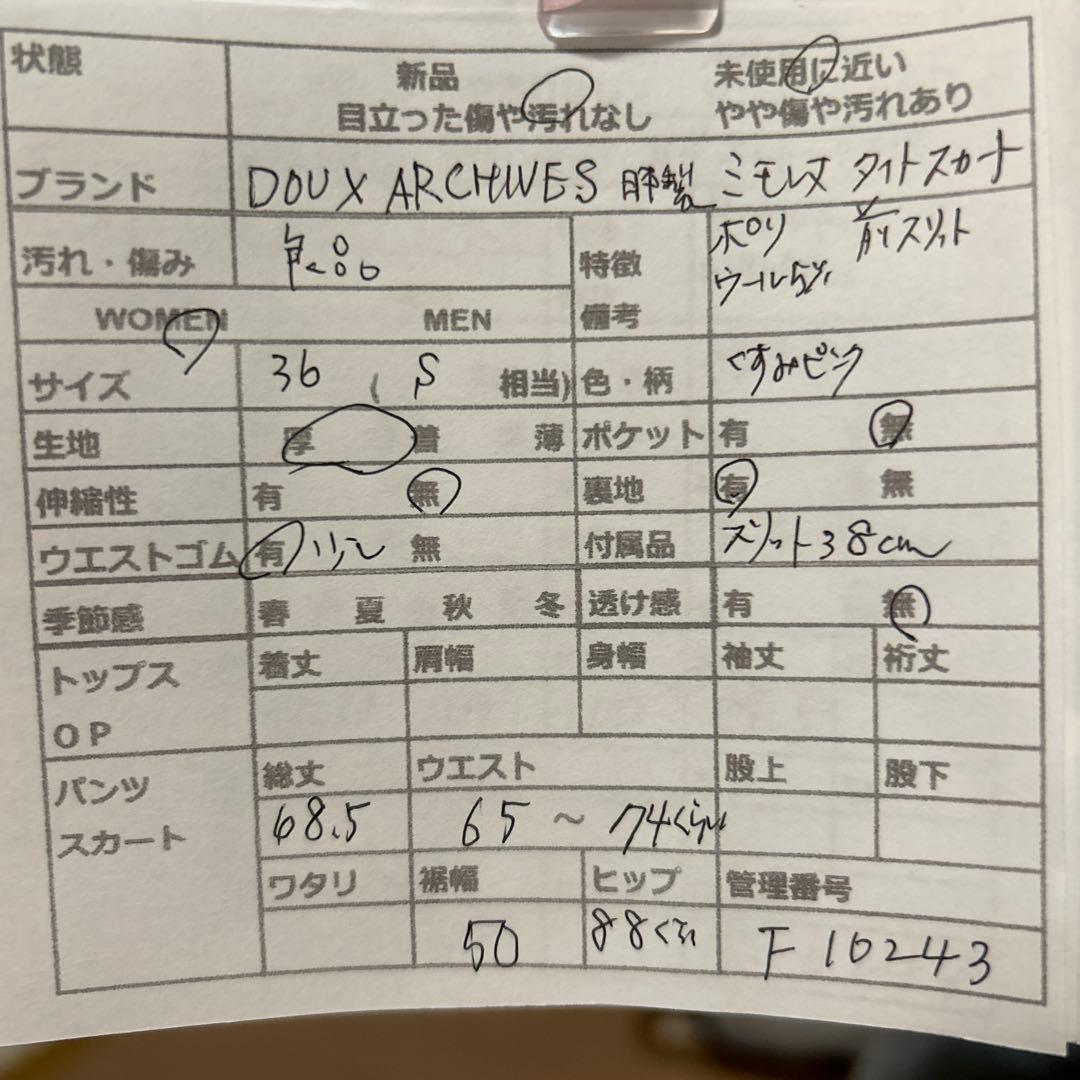 状態 新品 未使用に近い
目立った傷や汚れなし やや傷や汚れあり
ブランド DOUX ARCHIVES 日本製 ミモレ丈 タイトスカート
汚れ・傷み 良品 特徴 ポリ 前スリット
備考 ウール5%
WOMEN MEN
サイズ 36 ( S 相当) 色・柄 くすみピンク
生地 厚 普 薄 ポケット 有 無
伸縮性 有 無 裏地 有 無
ウエストゴム 有 無 付属品 スリット38cm
季節感 春 夏 秋 冬 透け感 有 無
トップス 着丈 肩幅 身幅 袖丈 裄丈
OP
パンツ 総丈 ウエスト 股上 股下
スカート 68.5 65 ~ 74くらい
ワタリ 裾幅 ヒップ 管理番号
50 88くらい F10243